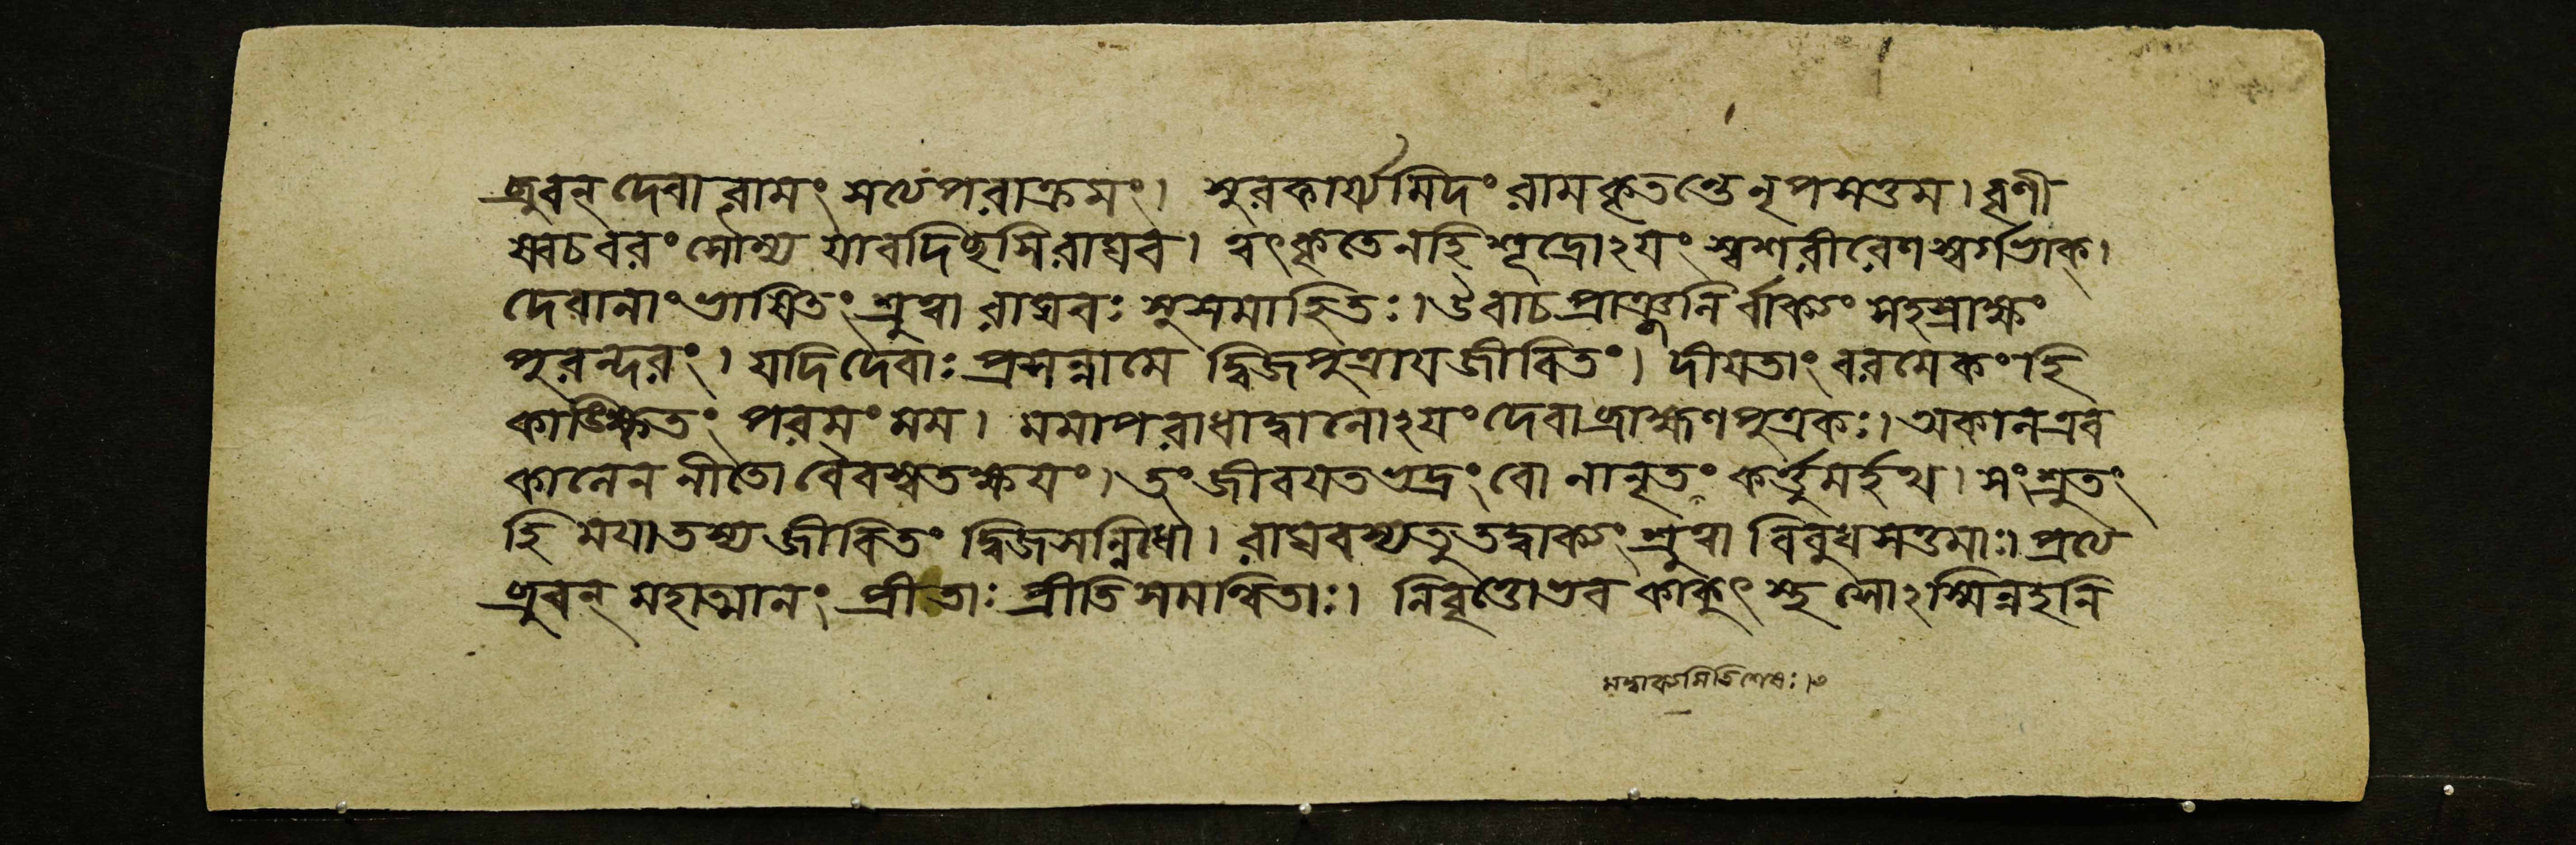 ব্রুবন্ দেবা রামং সত্যপরাক্রমং। সুরকার্য্যমিদং রাম কৃতন্তে নৃপসত্তম। বৃণী
ষ্বচ বরং সৌম্য যাবদিচ্ছসি রাঘব। ত্বৎকৃতে নহি শূদ্রোঽয়ং স্বশরীরেণ স্বর্গভাক্।
দেবানাং ভাষিতং শ্রুত্বা রাঘবঃ সুসমাহিতঃ। উবাচ প্রাঞ্জলির্বাক্যং সহস্রাক্ষং
পুরন্দরং। যদি দেবাঃ প্রসন্নামে দ্বিজপুত্রায জীবিতং। দীযতাং বরমেকং হি
কাঙ্ক্ষিতং পরমং মম। মমাপরাধাদ্বালোঽয়ং দেবা ব্রাহ্মণপুত্রকঃ। অকালএব
কালেন নীতো বৈবস্বতক্ষযং। তং জীবযত ভদ্রং বো নানৃতং কর্ত্তুমর্হথ। সংশ্রুতং
হি মযা তস্য জীবিতং দ্বিজসন্নিধৌ। রাঘবস্যতু তদ্বাক্যং শ্রুত্বা বিবুধসত্তমাঃ। প্রত্য
ব্রুবন্ মহাত্মানং প্রীতাঃ প্রীতিসমন্বিতাঃ। নিবৃত্তোভব কাকুৎস্থ সোঽস্মিন্নহনি
মদ্বাক্যমিতিশেষঃ।৩